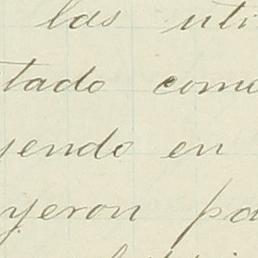 las uti
tado come
yendo en
yeron pa